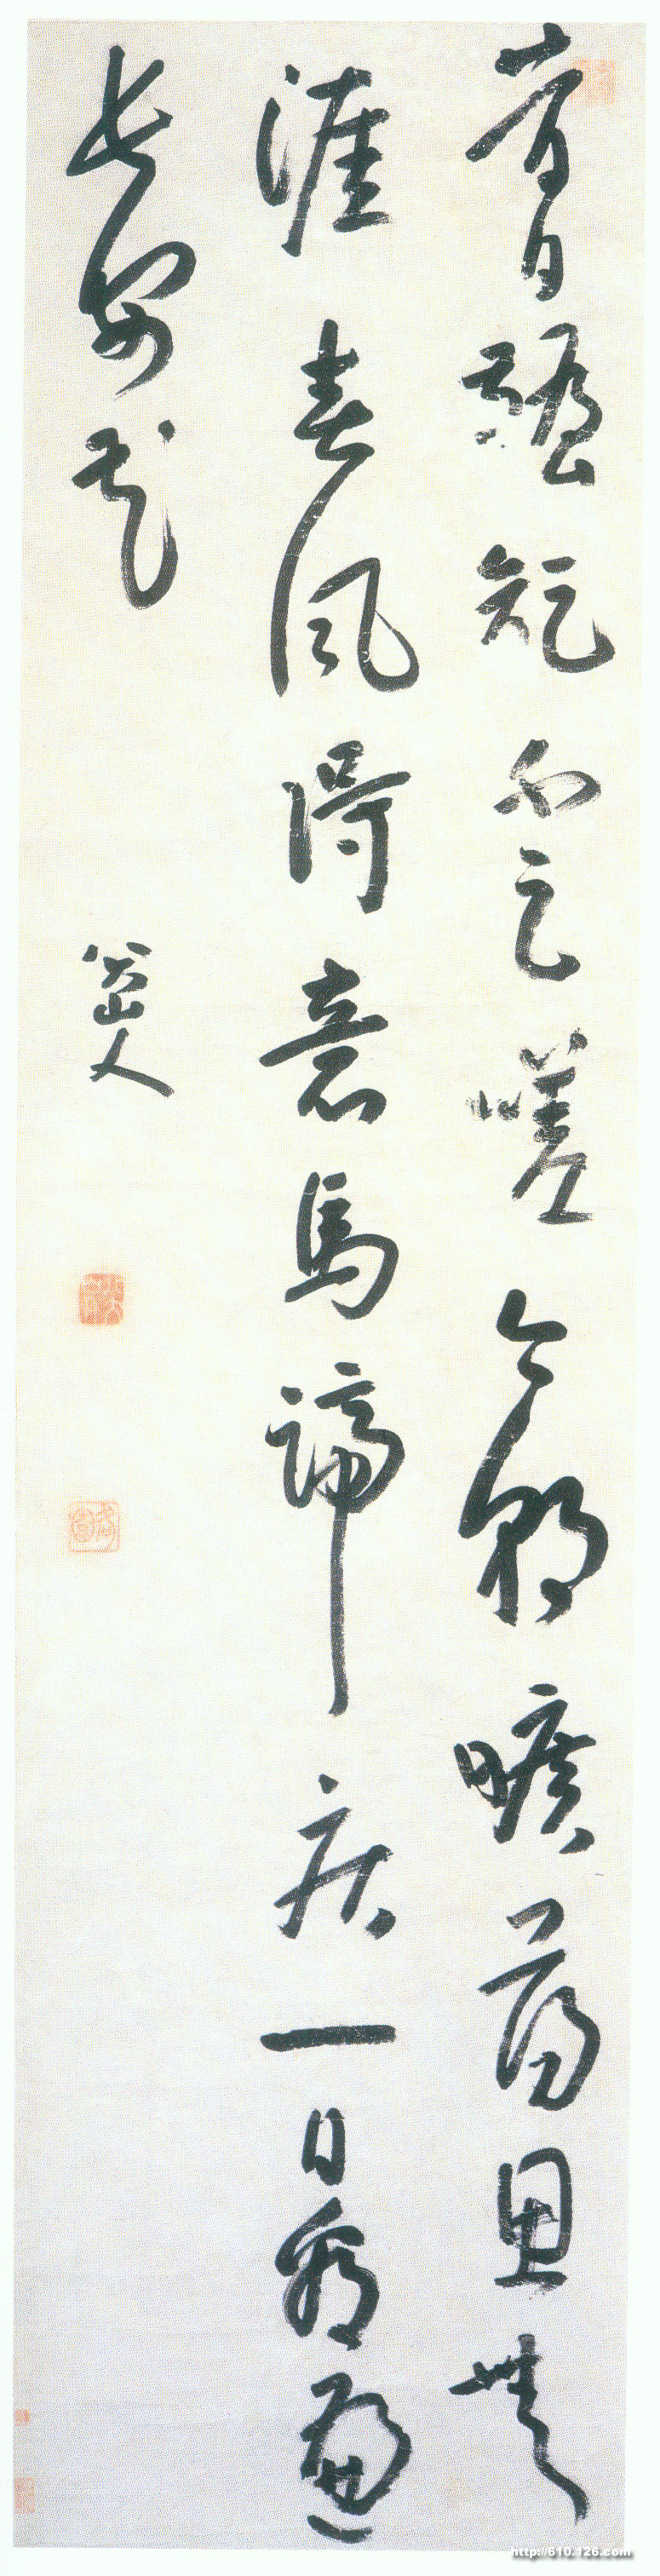 昔日不足嗟今朝曠蕩無
涯春風得意馬蹄疾一日看遍
長安花
八大山人
http://610.126.com